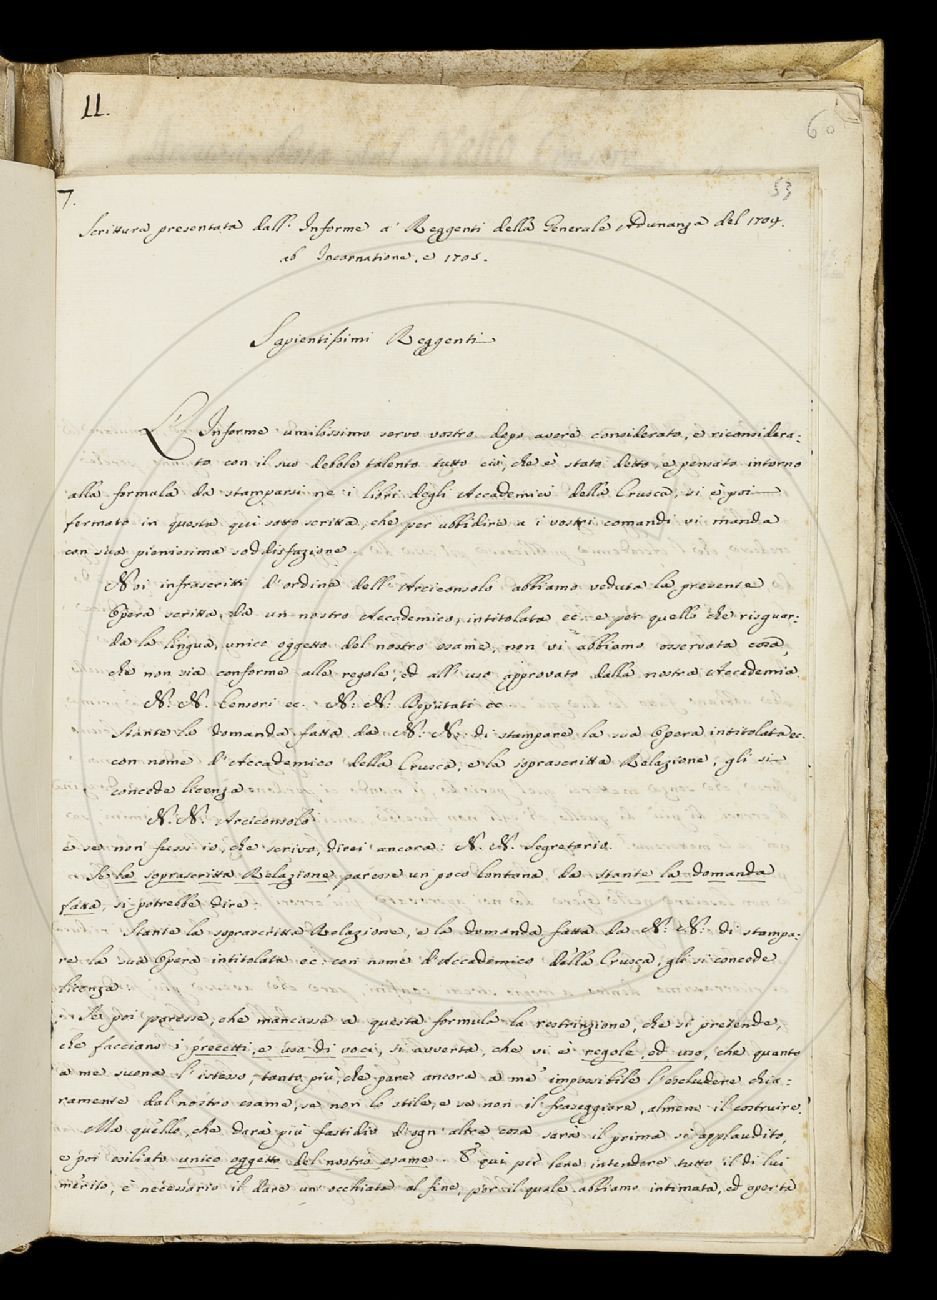 11.
60
53
7.
Scrittura presentata dall' Informe a' Reggenti della Generale Adunanza del 1704.
ab Incarnatione, e 1705.
Sapientissimi Reggenti
L'Informe umilissimo servo vostro dopo avere considerato, e riconsidera:
to con il suo debole talento tutto ciò, che è stato detto, e pensato intorno
alla formula da stamparsi ne i libri degli Accademici della Crusca, si è poi
fermato in questa qui sotto scritta, che per ubbidire a i vostri comandi vi manda
con sua pienissima soddisfazione.
Noi infrascritti d'ordine dell' Arciconsolo abbiamo veduta la presente
Opera scritta da un nostro Accademico, intitolata ec. e per quello che risguar:
da la lingua, unico oggetto del nostro esame, non vi abbiamo osservata cosa,
che non sia conforme alle regole, ed all' uso approvato dalla nostra Accademia
N: N: Censori ec. N: N: Deputati ec
Stante la domanda fatta da N: N: di stampare la sua Opera intitolata ec.
con nome d'Accademico della Crusca, e la soprascritta Relazione, gli si
concede licenza
N: N: Arciconsolo
e se non fussi io, che scrivo, direi ancora: N: N: Segretario.
Se la soprascritta Relazione paresse un poco lontana da stante la domanda
fatta, si potrebbe dire:
Stante la soprascritta Relazione, e la domanda fatta da N: N: di stampa:
re la sua Opera intitolata ec: con nome d'Accademico della Crusca, gli si concede
licenza:
Se poi paresse, che mancasse a questa formula la restrinzione, che si pretende,
che facciano i precetti, e uso di voci, si avverta, che vi è regole, ed uso, che quanto
a me suona l'istesso, tanto più, che pare ancora a me impossibile l'escludere chia:
ramente dal nostro esame, se non lo stile, e se non il fraseggiare, almeno il costruire.
Ma quello, che darà più fastidio d'ogn' altra cosa sarà il prima sì applaudito,
e poi esiliato unico oggetto del nostro esame. E quì per bene intendere tutto il di lui
merito, è necessario il dare un' occhiata al fine, per il quale abbiamo intimata, ed aperta